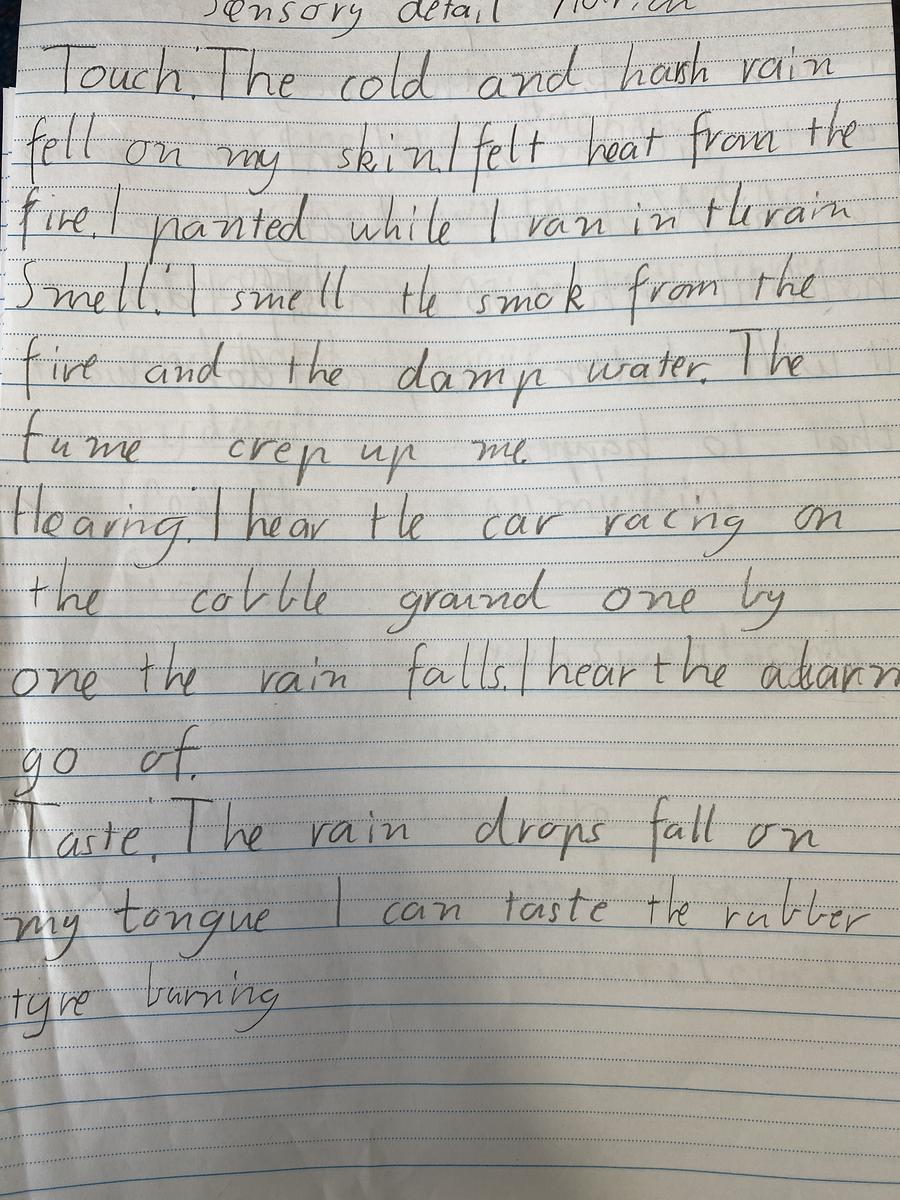 Sensory detail
Touch: The cold and harsh rain
fell on my skin. I felt heat from the
fire. I panted while I ran in the rain
Smell: I smell the smok from the
fire and the damp water. The
fume crep up me.
Hearing: I hear the car racing on
the cobble ground one by
one the rain falls. I hear the alarm
go of.
Taste: The rain drops fall on
my tongue I can taste the rubber
tyre burning